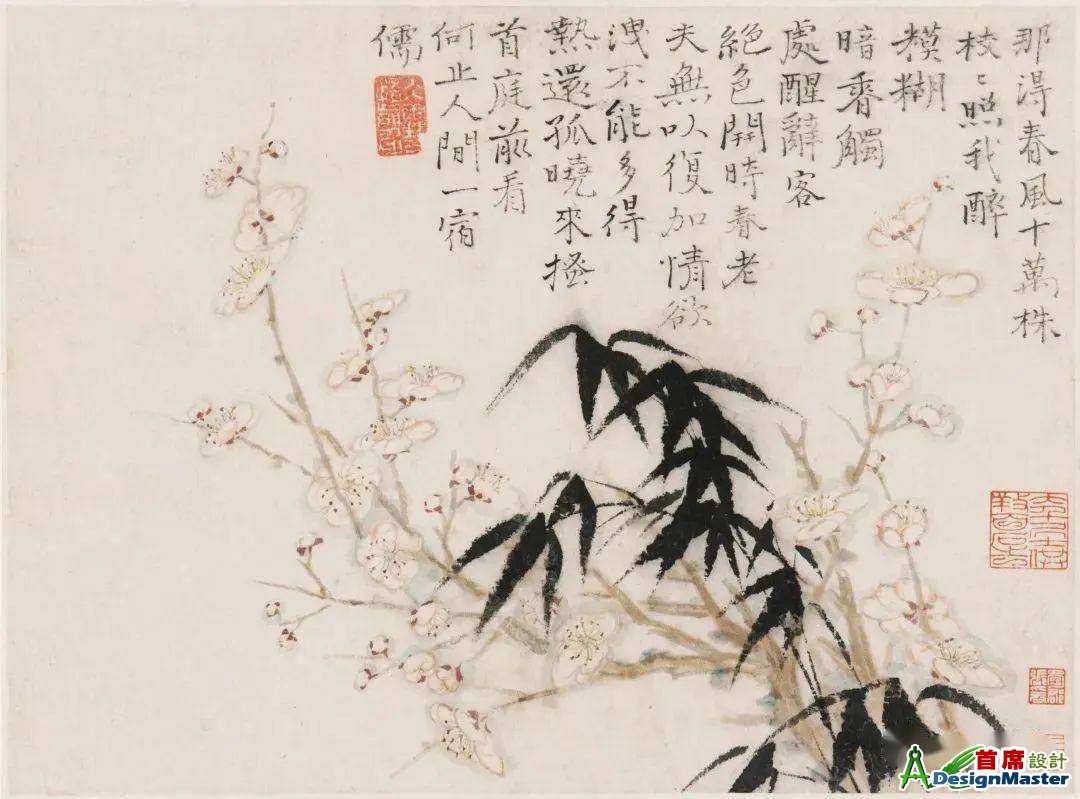 那淂春風十萬株
枝〻照我醉
糢糊
暗香觸
處醒辭客
絕色開時春老
夫無以復加情欲
洩不能多得
熱還孤曉來搔
首庭前看
何止人間一宿
儒
首席設計
DesignMaster